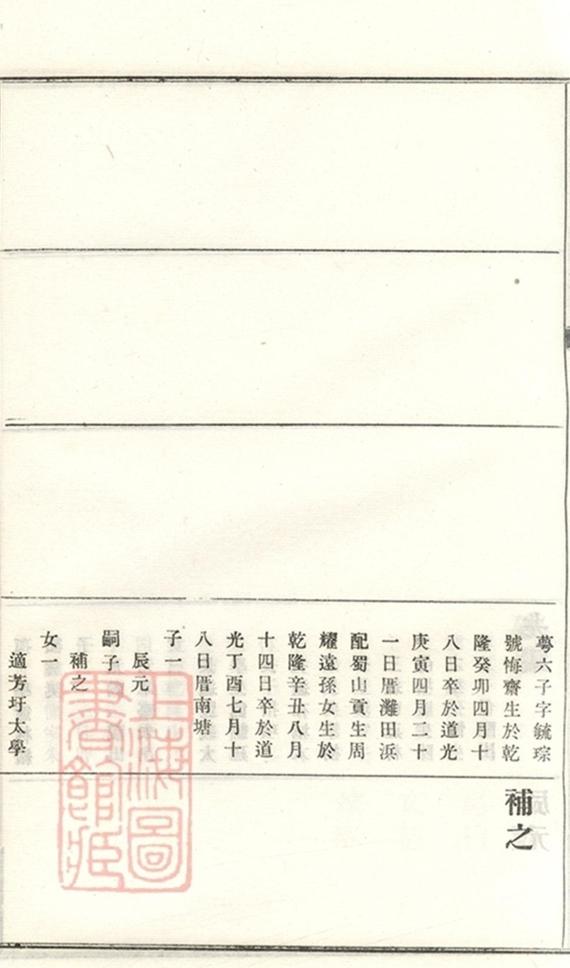 蕚六子字毓琮
號悔齋生於乾
隆癸卯四月十
八日卒於道光
庚寅四月二十
一日厝灘田浜
配蜀山貢生周
耀遠孫女生於
乾隆辛丑八月
十四日卒於道
光丁酉七月十
八日厝南塘
子一
辰元
嗣子一
補之
女一
適芳圩太學
補之
上海圖
書館藏